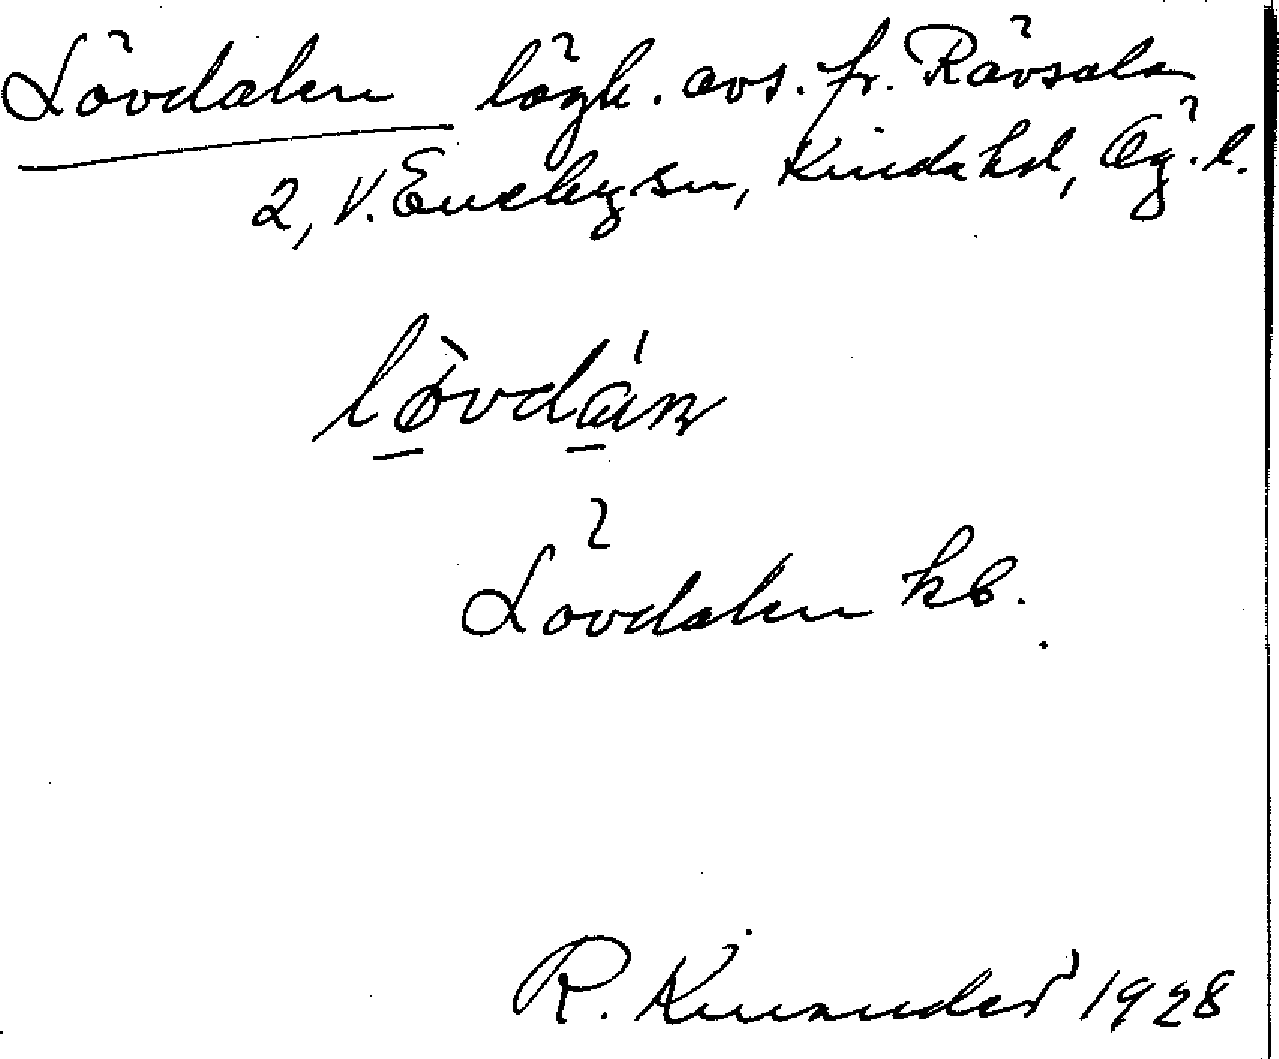 Lövdalen lägh. avs. fr. Rävsala
2, V. Eneby sn, Kinda hd, Ög. l.
lövdán
Lövdalen kb.
R. Kinander 1928